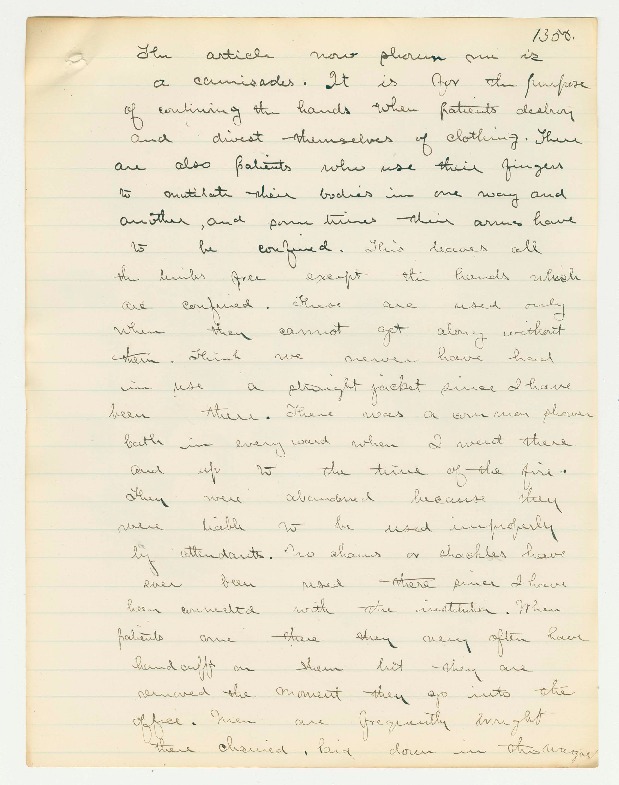 135 8.
The article now shown me is
a camisades. It is for the purpose
of confining the hands when patients destroy
and divest themselves of clothing. There
are also patients who use their fingers
to mutilate their bodies in one way and
another, and some times their arms have
to be confined. This leaves all
the limbs free except the hands which
are confined. These are used only
when they cannot get along without
them. Think we never have had
in use a straight jacket since I have
been there. There was a common shower
bath in every ward when I went there
and up to the time of the fire.
They were abandoned because they
were liable to be used improperly
by attendants. No chains or shackles have
ever been used there since I have
been connected with the institution. When
patients come there they very often have
handcuffs on them but they are
removed the moment they go into the
office. Men are frequently brought
there chained, laid down in the wagon